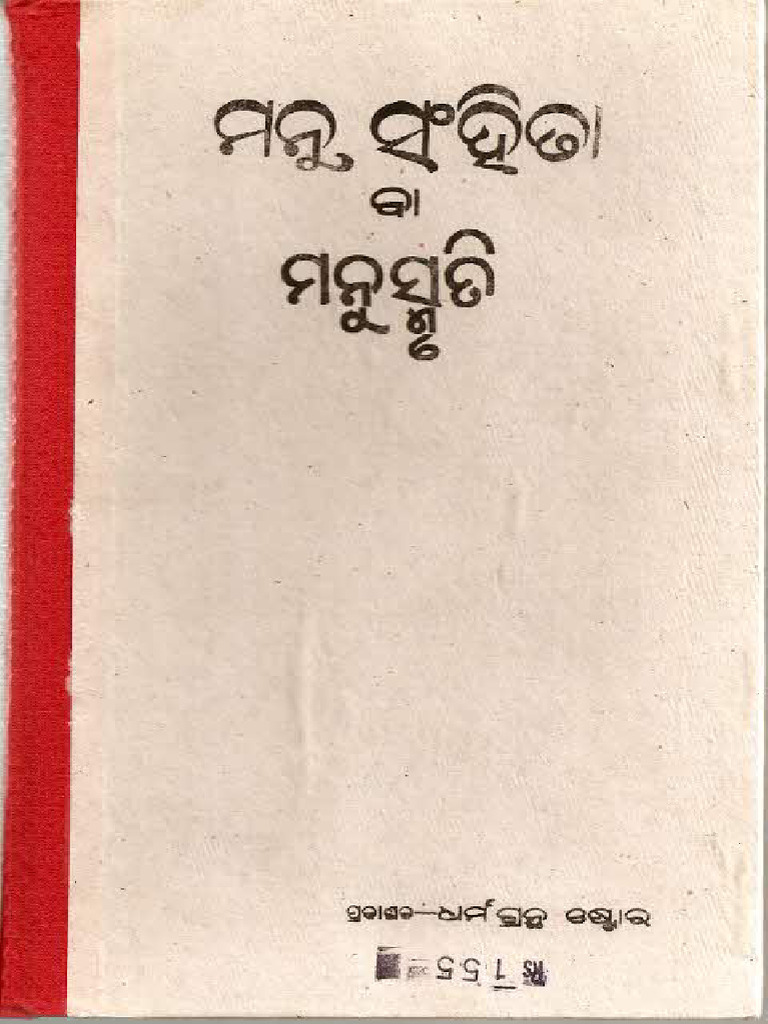 ମନୁ ସଂହିତା
ବା
ମନୁସ୍ମୃତି
ପ୍ରକାଶକ—ଧର୍ମଗ୍ରନ୍ଥ ଷ୍ଟୋର
RS 155